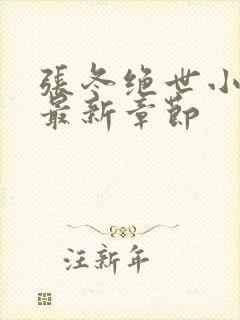 張冬绝世小
最新章節
汪新年